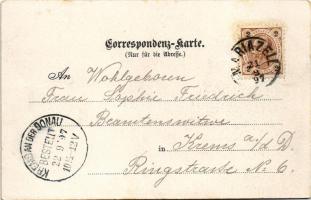 Correspondenz-Karte.
(Nur für die Adresse.)
MARIAZELL
An Wohlgeboren
Frau Sophie Friedrich
Beamtenswitwe
in Krems a/d D.
Ringstrasse N. 6.
KREMS AN DER DONAU
BESTELLT
22 9 97